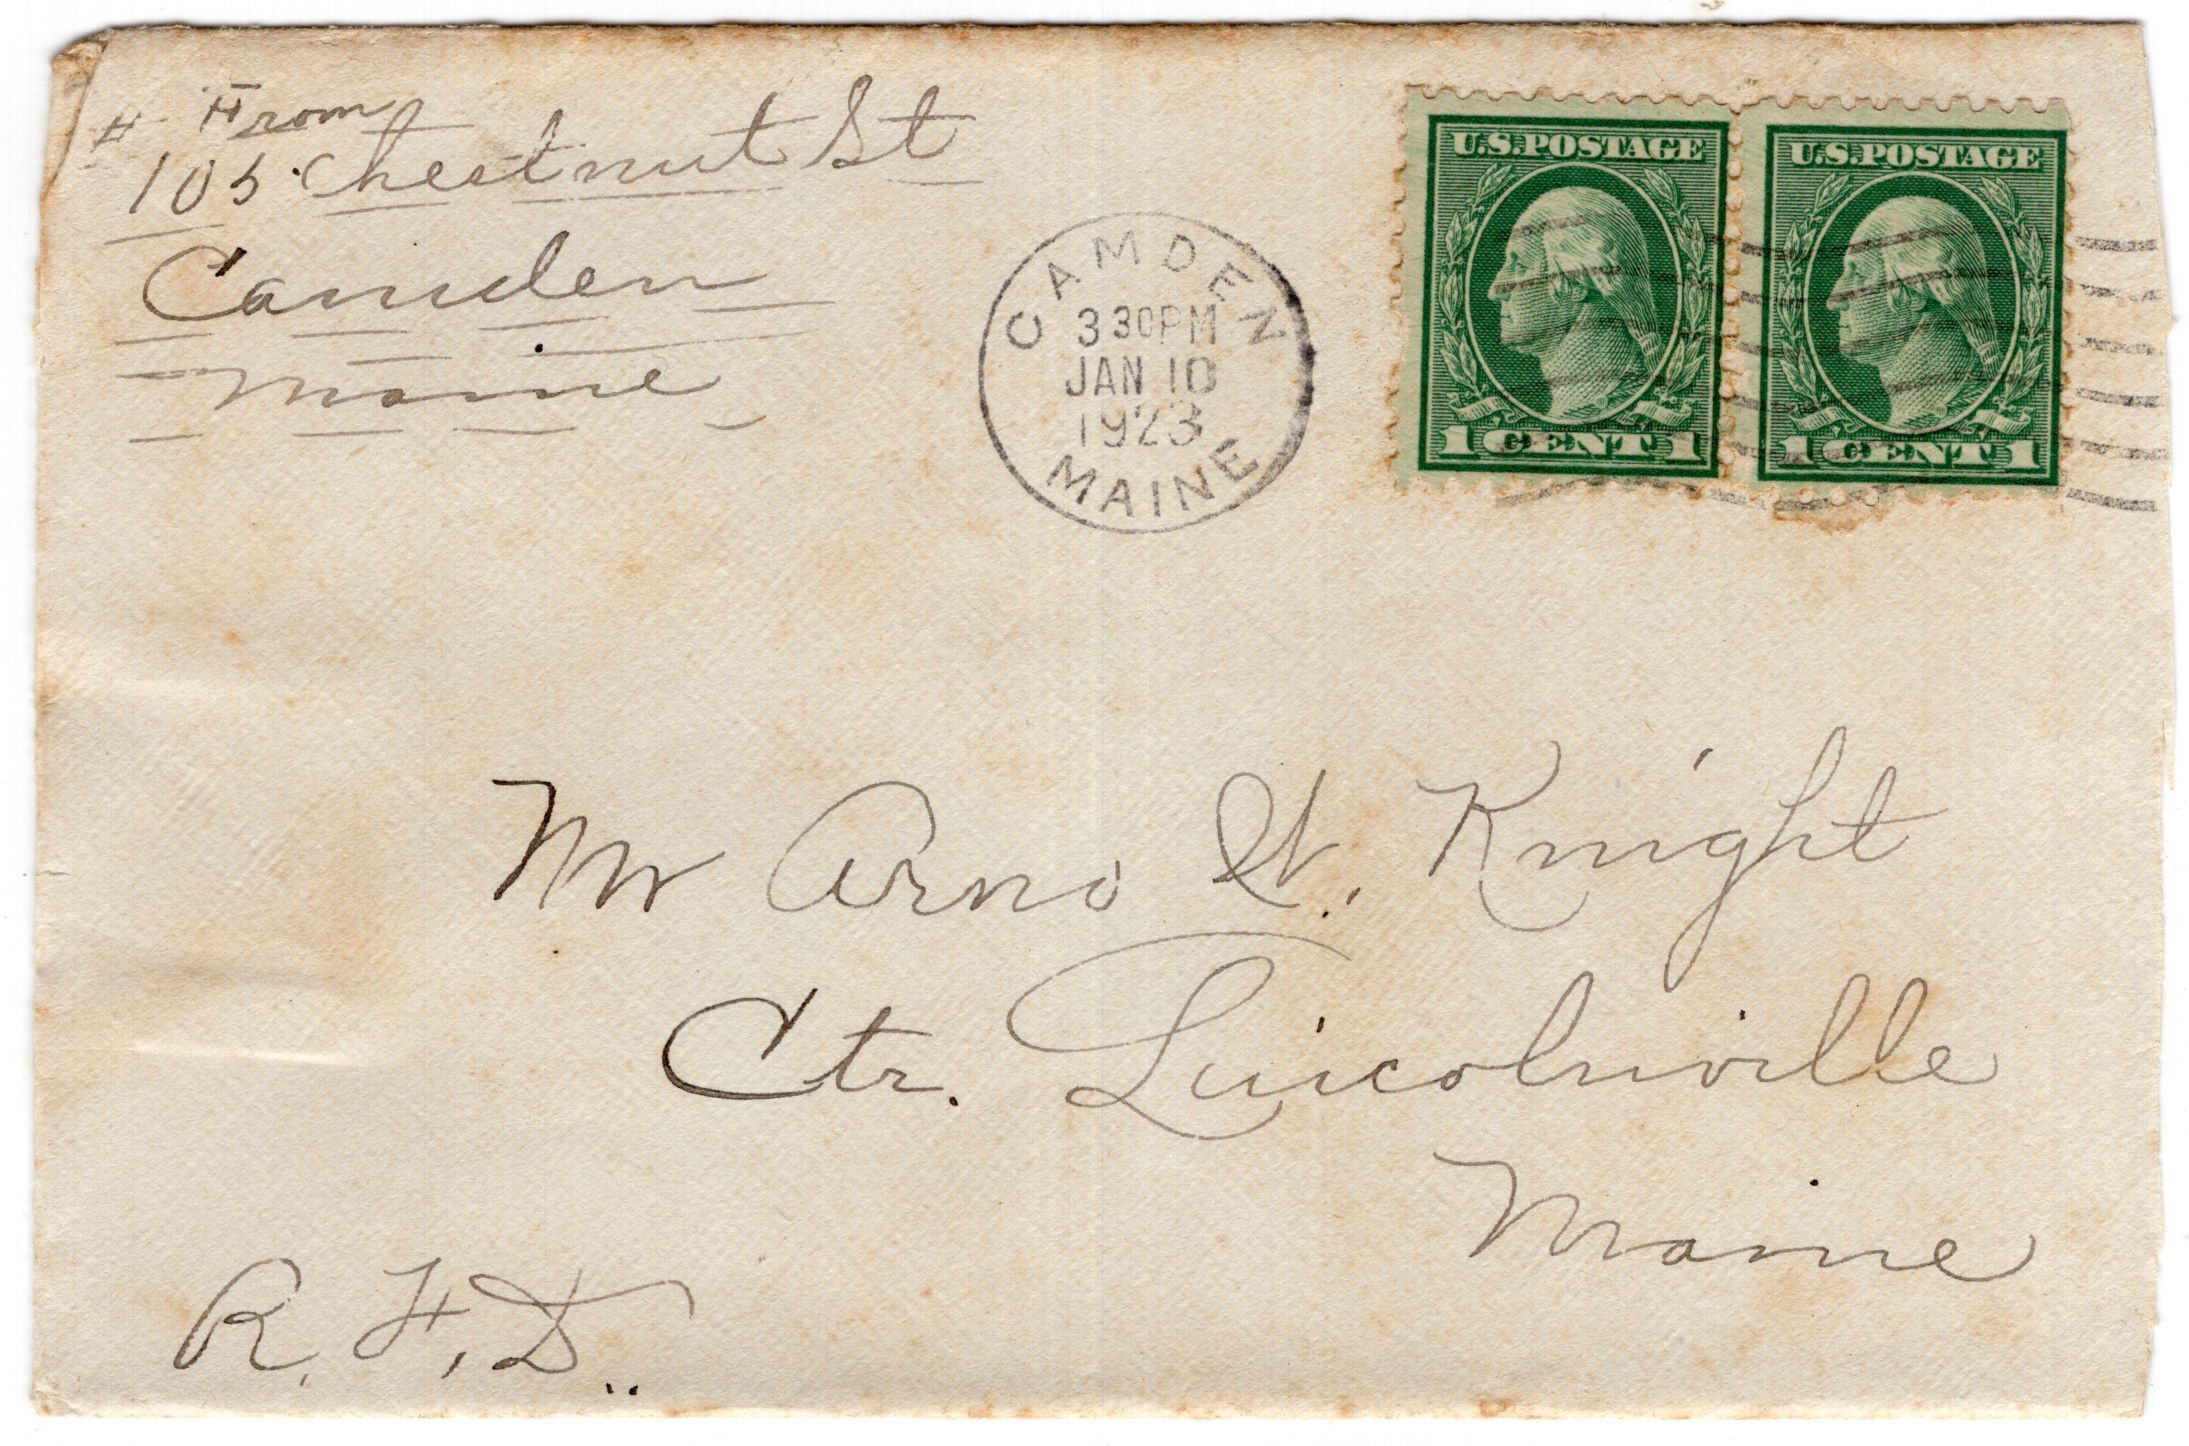 From
# 105 Chestnut St
Camden
Maine
CAMDEN
3 30PM
JAN 10
1923
MAINE
U.S.POSTAGE
1 CENT 1
U.S.POSTAGE
1 CENT 1
Mr Arno W. Knight
Ctr. Lincolnville
Maine
R. F. D.